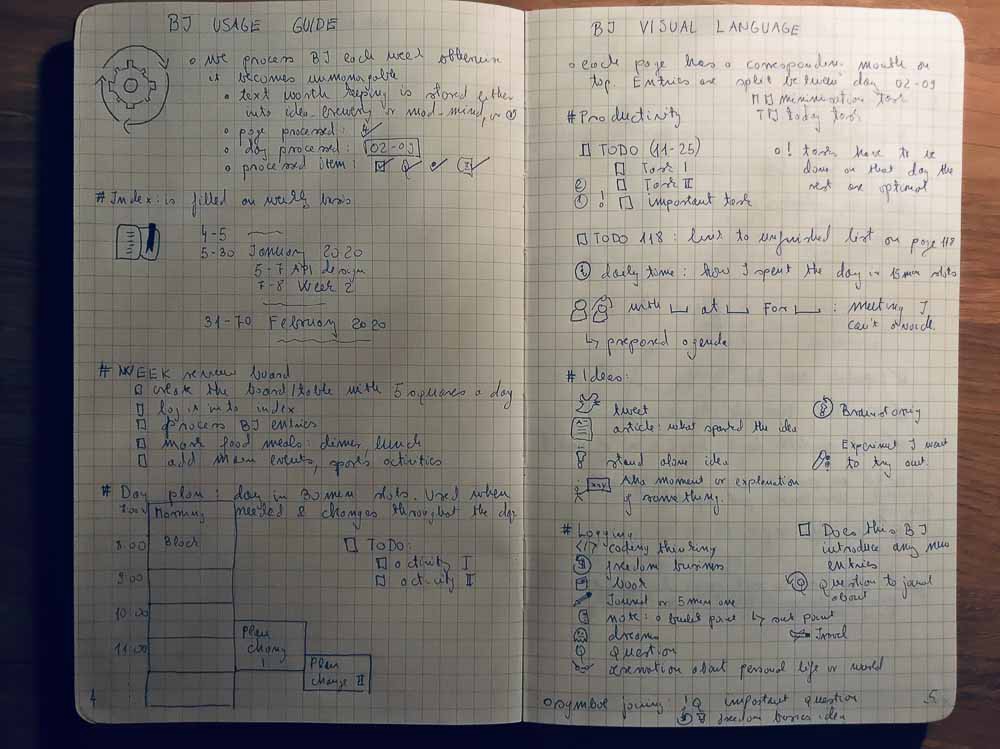 BJ USAGE GUIDE
we process BJ each week otherwise
it becomes unmanagable
text worth keeping is stored either
into idea brewery or mod-mind, or
page processed:
day processed: 02-03
processed item:
# Index: is filled on weekly basis
4-5
5-30 January 2020
5-7 API design
7-8 Week 2
31-70 February 2020
# WEEK review board
create the board/table with 5 squares a day
log it into index
process BJ entries
mark food meals: dinner, lunch
add main events, sports activities
# Day plan: day in 30 min slots. Used when
needed & changes throughout the day
7:00 Morning
Block
8:00
TODO:
activity I
activity II
9:00
10:00
11:00
Plan
change
I
Plan
change II
4
BJ VISUAL LANGUAGE
each page has a corresponding month on
top. Entries are split between day 02-09
minimisation task
T today task
# Productivity
TODO (11-25)
Task I
Task II
! important task
! tasks have to be
done on that day the
rest are optional
TODO 118: link to unfinished list on page 118
daily time: how I spent the day in 15 min slots
with at For : meeting I
can't avoid.
prepared agenda
# Ideas:
tweet
article: what sparked the idea
stand alone idea
Aha moment or explanation
of something.
Brainstorming
Experiment I want
to try out.
# Logging
</> coding thinking
freedom business
book
Journal or 5 min one
note: o bullet point ↳ sub point
dream
Q Question
observation about personal life or world
Does this BJ
introduce any new
entries
Q Question to journal
about
Travel
symbol joining: ! Q important question
freedom business idea
5